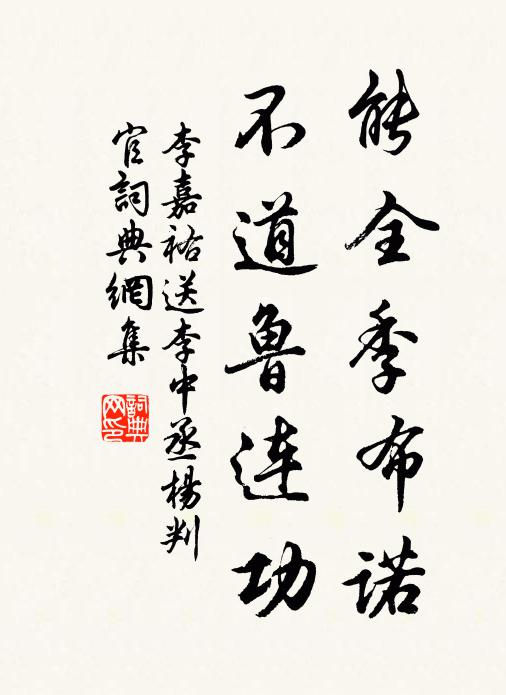 能全季布诺
不道鲁连功
李嘉祐送李中丞楊判
官詞典網集
詞典
网印